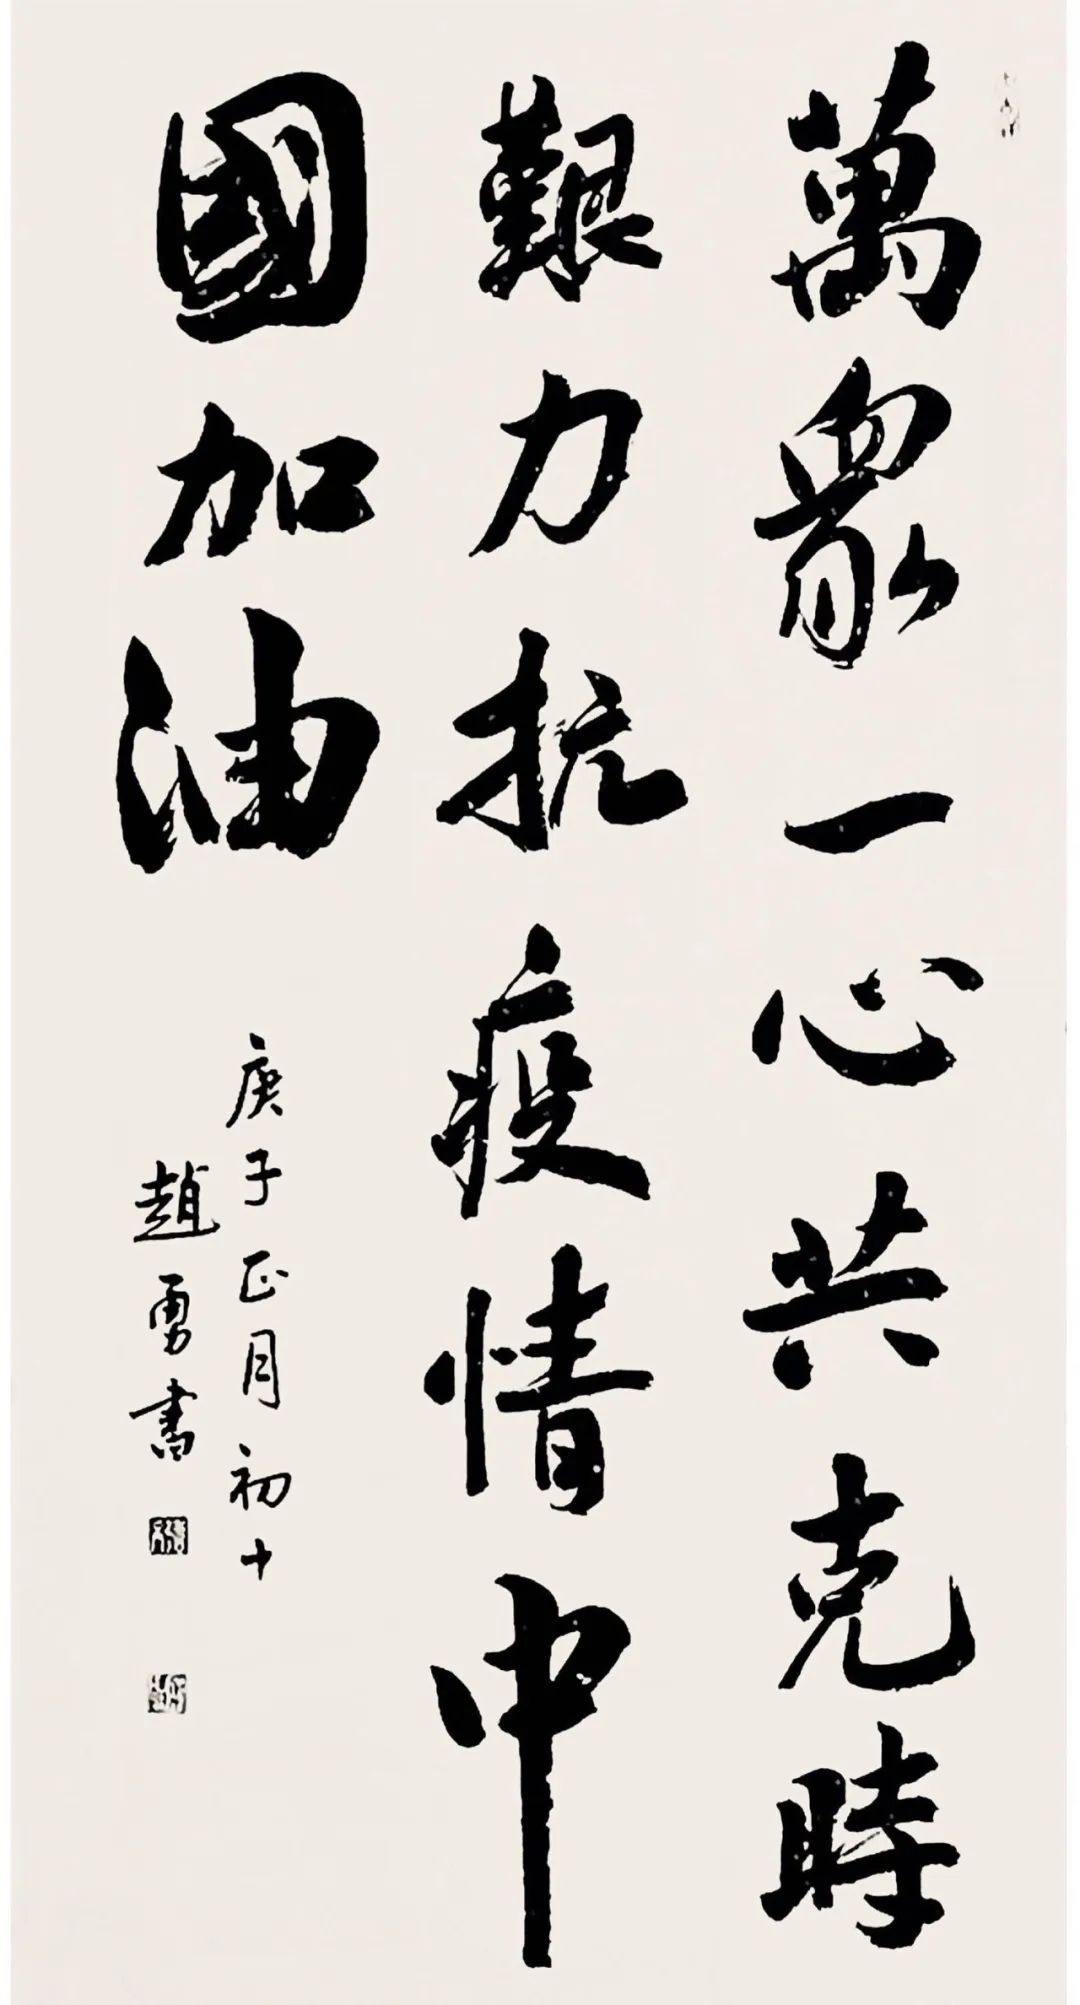 萬眾一心共克時
艱力抗疫情中
國加油
庚子正月初十
趙勇書